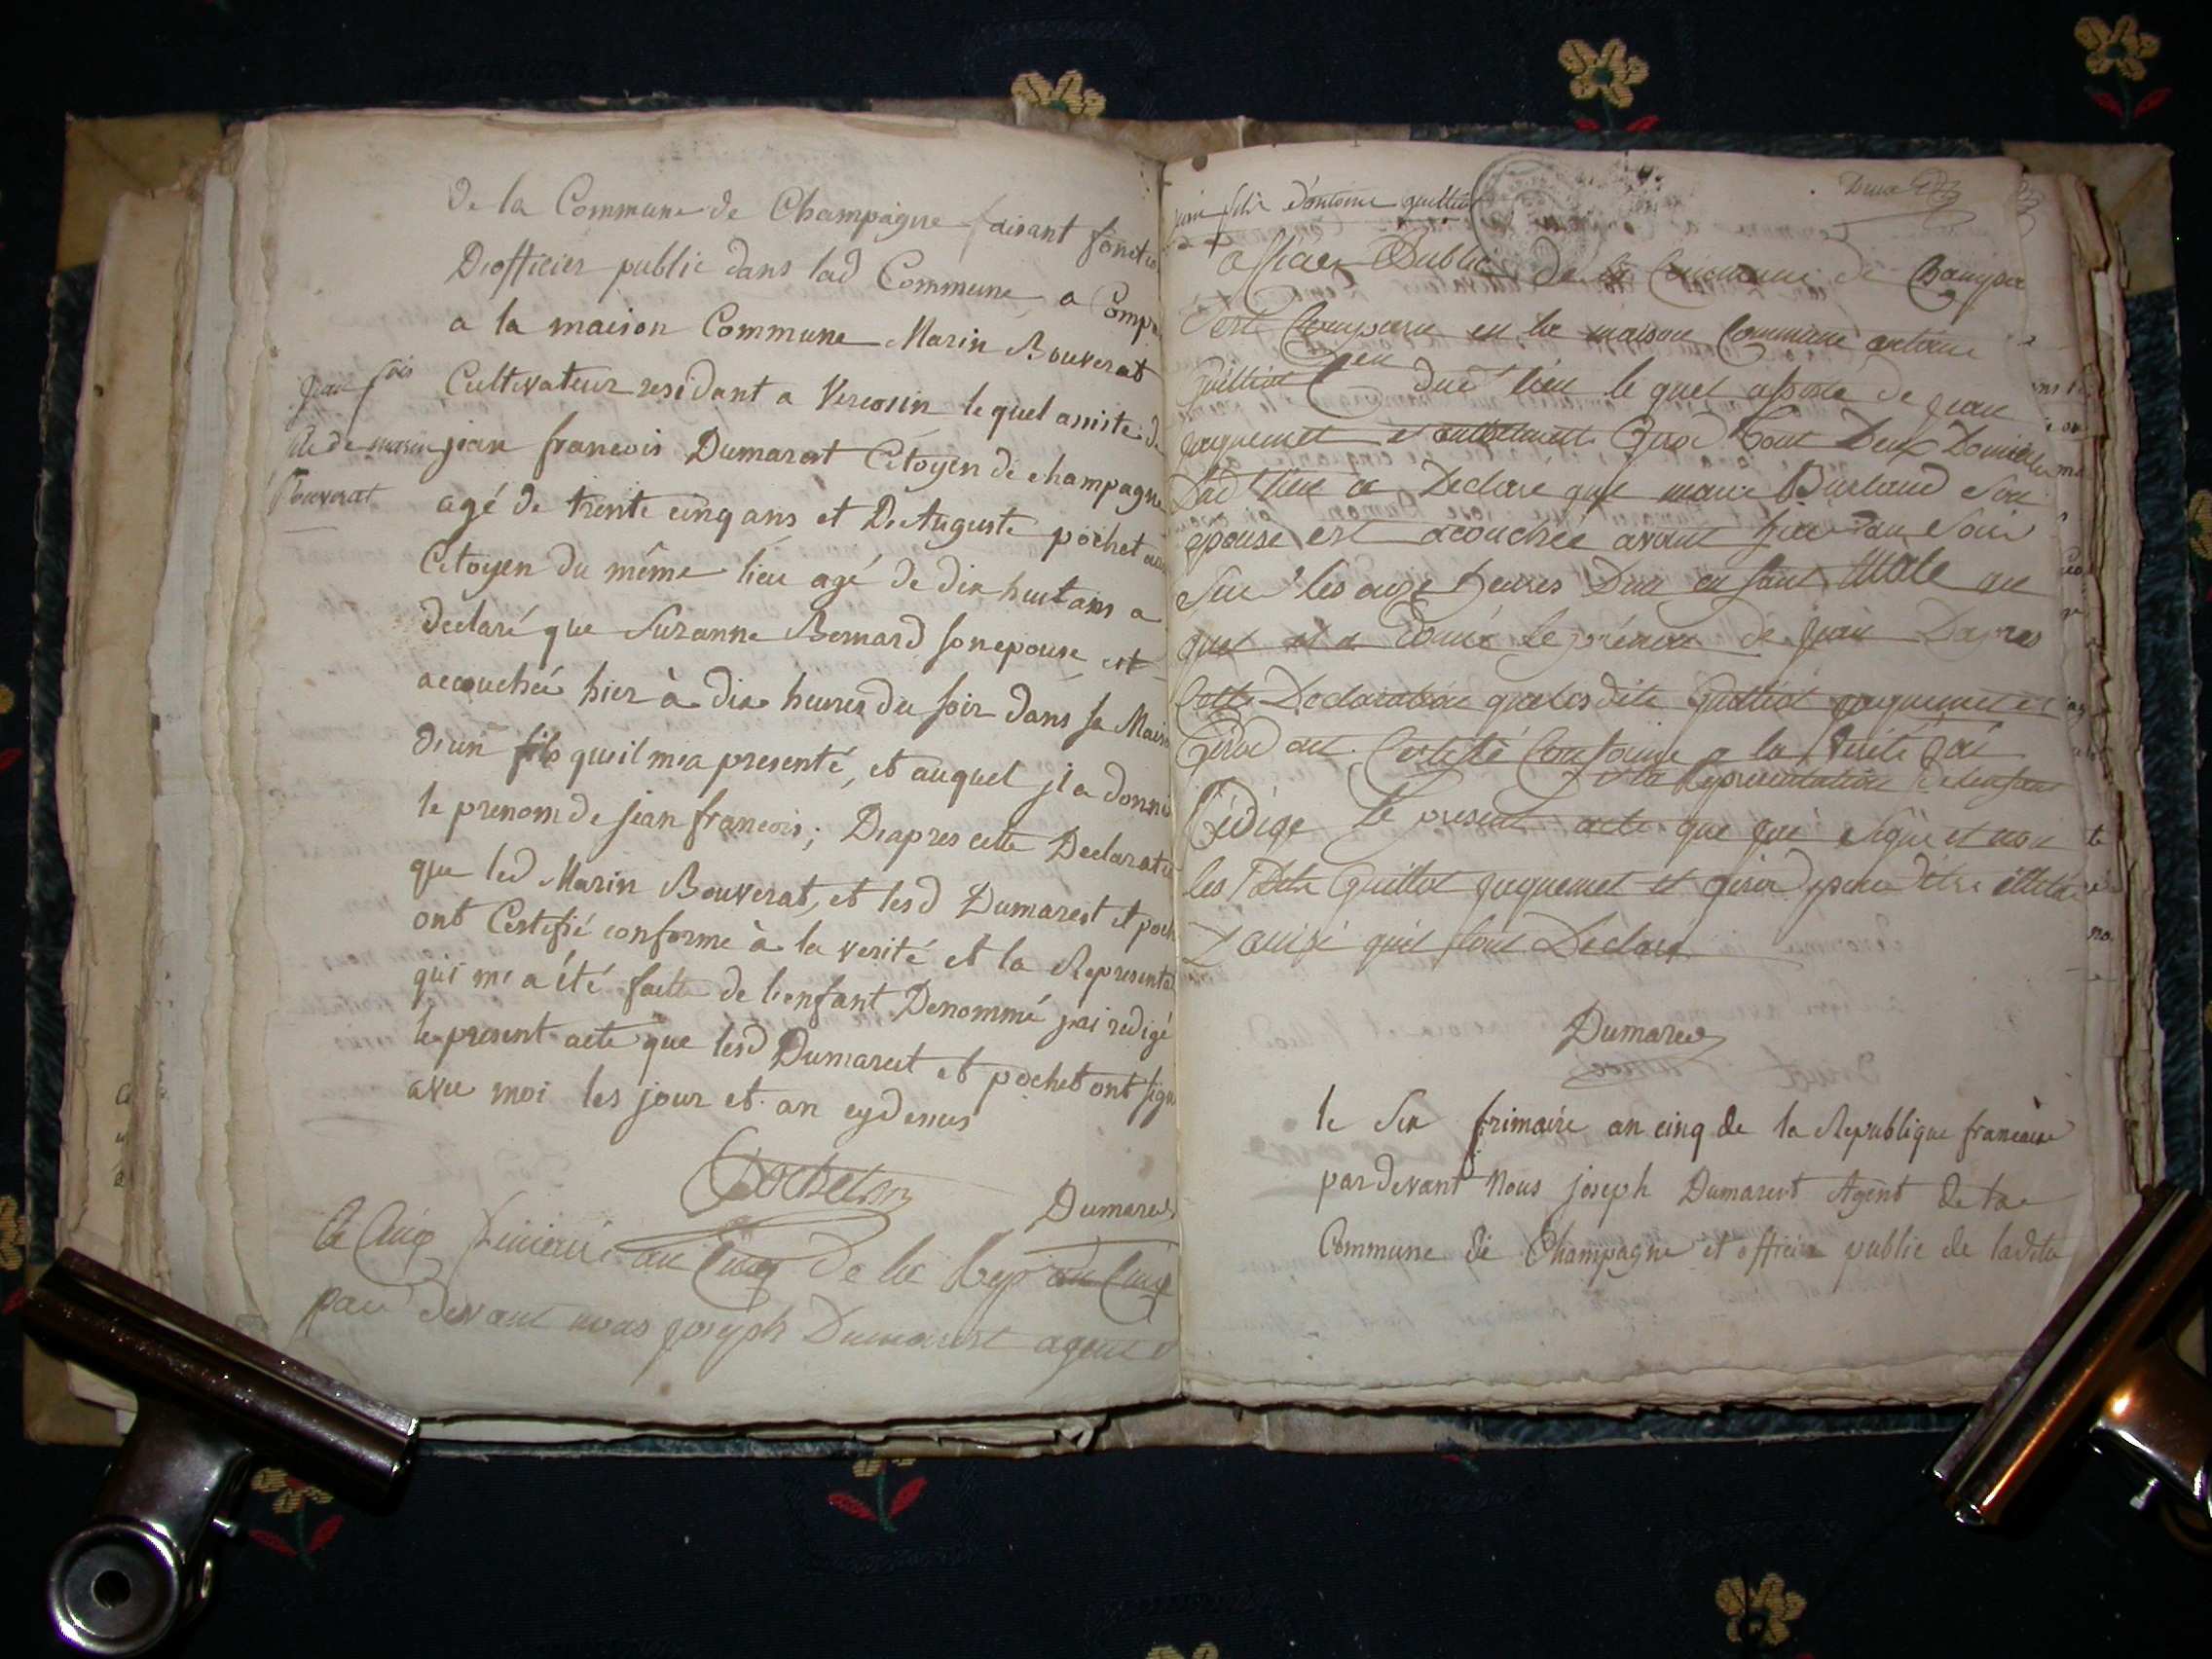 de la Commune de Champagne faisant fonctio
D'officier public dans lad Commune a Compa
a la maison Commune Marin Bouverat
Cultivateur residant a Vercosin le quel assisté de
jean francois Dumarest Citoyen de champagne
agé de trente cinq ans et De Auguste pochet
Citoyen du même lieu agé de dix huit ans a
declaré que Suzanne Bernard son epouse est
accouchée hier à dix heures du soir dans sa Maiso
d'un fils qu'il m'a presenté, et auquel jl a donné
le prenom de jean francois; D'apres cette Declaratio
que led Marin Bouverat, et lesd Dumarest et poch
ont Certifié conforme à la verité et la Representa
qui m'a été faitte de l'enfant Denommé jai redigé
le present acte que lesd Dumarest et pochet ont signé
avec moi les jour et an cydessus
jean fois
fils de marin
Bouverat
Pochet
Dumarest
Le Cinq frimaire an Cinq de la Rep an Cinq
par devant nous joseph Dumarest agent et
jean fils d'antoine guilliot
officier Public de la Commune de Champa
S'est Comparu en la maison Commune antoine
Guilliot dud lieu le quel assisté de jean
jaquemet et Girod tout Deux Domicilie
Dud lieu a Declaré que marie Burlaud son
epouse est acouchée avant hier au Soir
Sur les onze heures Dun enfant Male au
quel il a donné le prénom de jean Dapres
Cette Declaration que les dits Guilliot jaquemet et
Girod ont Certifié Conforme a la Verité jai
et la Representation de lenfant
Redigé le present acte que jai signé et non
les Dits Guilliot jaquemet et girod pour dêtre illité
quil sont Declaré
Dumarest
le Six frimaire an cinq de la Republique francaise
pardevant Nous joseph Dumarest Agent de la
Commune de Champagne et officier public de ladite